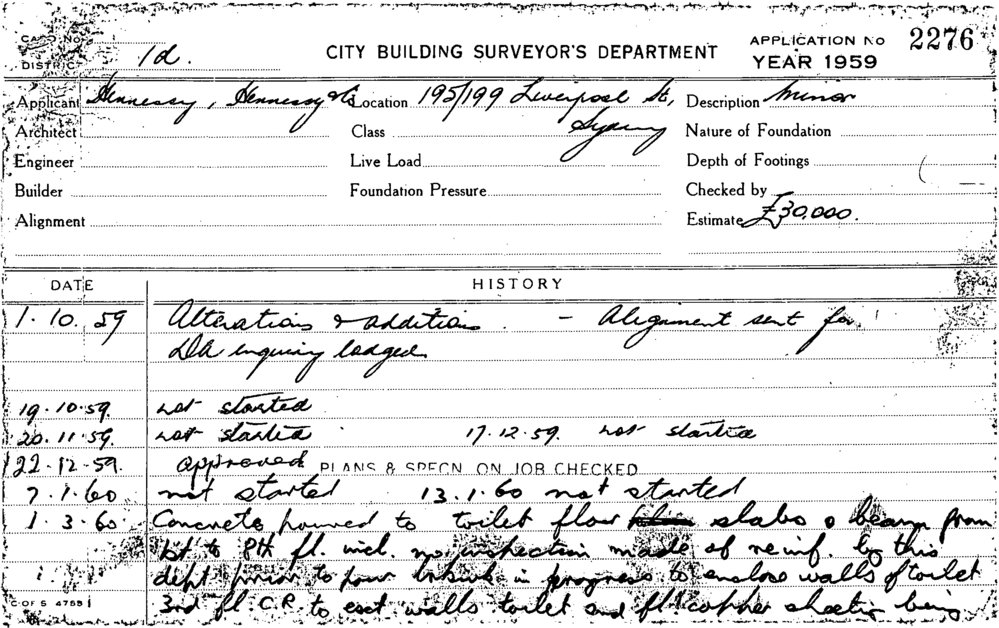 CARD No.
DISTRICT 1d.
CITY BUILDING SURVEYOR'S DEPARTMENT
APPLICATION No 2276
YEAR 1959
Applicant Hennessy, Hennessy & Co Location 195/199 Liverpool St, Description Minor
Architect Class Sydney Nature of Foundation
Engineer Live Load Depth of Footings
Builder Foundation Pressure Checked by
Alignment Estimate £30,000.
DATE HISTORY
1. 10. 59 Alterations & additions. - Alignment sent for
DA enquiry lodged
19. 10. 59. not started
20. 11. 59. not started 17. 12. 59. not started
22. 12. 59. approved PLANS & SPECN. ON JOB CHECKED
7. 1. 60 not started 13. 1. 60 not started
1. 3. 60. Concrete poured to toilet floor slabs & beams from
bt to PH fl. incl. no inspection made of reinf. by this
dept prior to pour brkwk in progress to enclose walls of toilet
3rd fl. C.R. to ext walls toilet 2nd fl. copper sheeting being
C OF S 4755